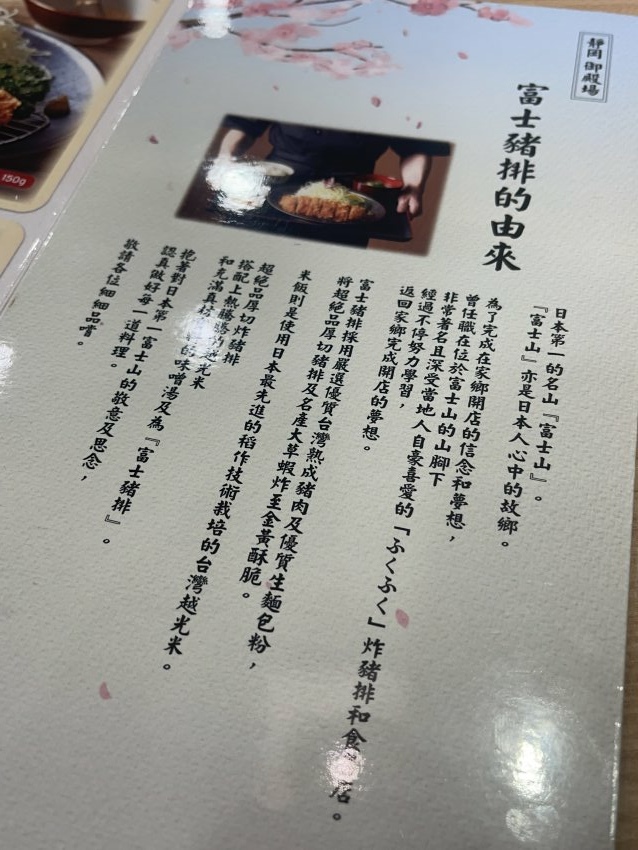 靜岡 御殿場
富士豬排的由來
日本第一的名山『富士山』。
『富士山』亦是日本人心中的故鄉。
為了完成在家鄉開店的信念和夢想，
曾任職在位於富士山的山腳下
非常著名且深受當地人自豪喜愛的「ふくふく」炸豬排和食店。
經過不停努力學習，
返回家鄉完成開店的夢想。
富士豬排採用嚴選優質台灣熟成豬肉及優質生麵包粉，
將超絕品厚切豬排及名產大草蝦炸至金黃酥脆。
米飯則是使用日本最先進的稻作技術栽培的台灣越光米。
超絕品厚切炸豬排
搭配上熱騰騰的越光米
和充滿真 的味噌湯及為『富士豬排』。
抱著對日本第一富士山的敬意及思念，
認真做好每一道料理。
敬請各位細細品嚐。
150g